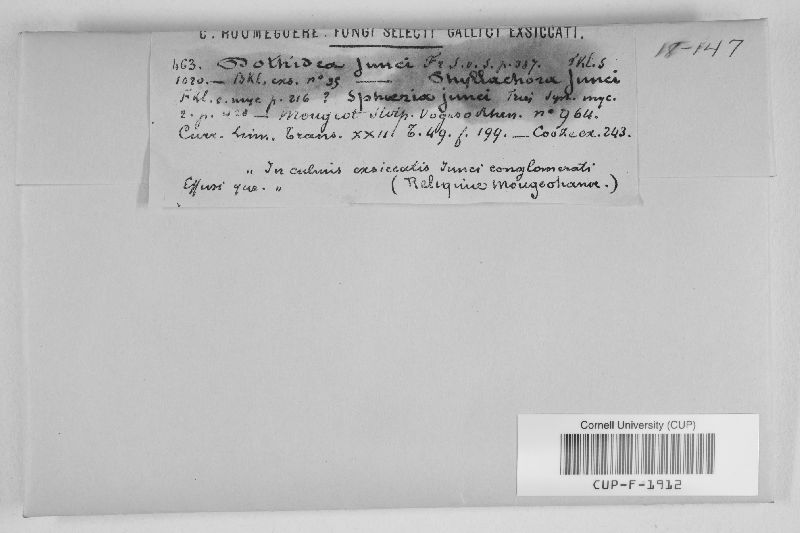 C. ROUMEGUERE. FUNGI SELECTI GALLICI EXSICCATI.
18-147
463. Dothidea Junci Fr. S. v. S. p. 387. Kl. S
1020. — Bkl. exs. nº 95 — Phyllachora Junci
Fkl. s. myc p. 216 ? Sphaeria junci Fries Syst. myc.
2. p. 428 — Mougeot Stirp. Vog. so Rhen. nº 964.
Curr. Linn. Trans. XXIII T. 49 f. 199. — Cooke ex. 243.
„ In culmis exsiccatis Junci conglomerati
Effusi que. „ (Reliquiae Mougeotianae.)
Cornell University (CUP)
CUP-F-1912